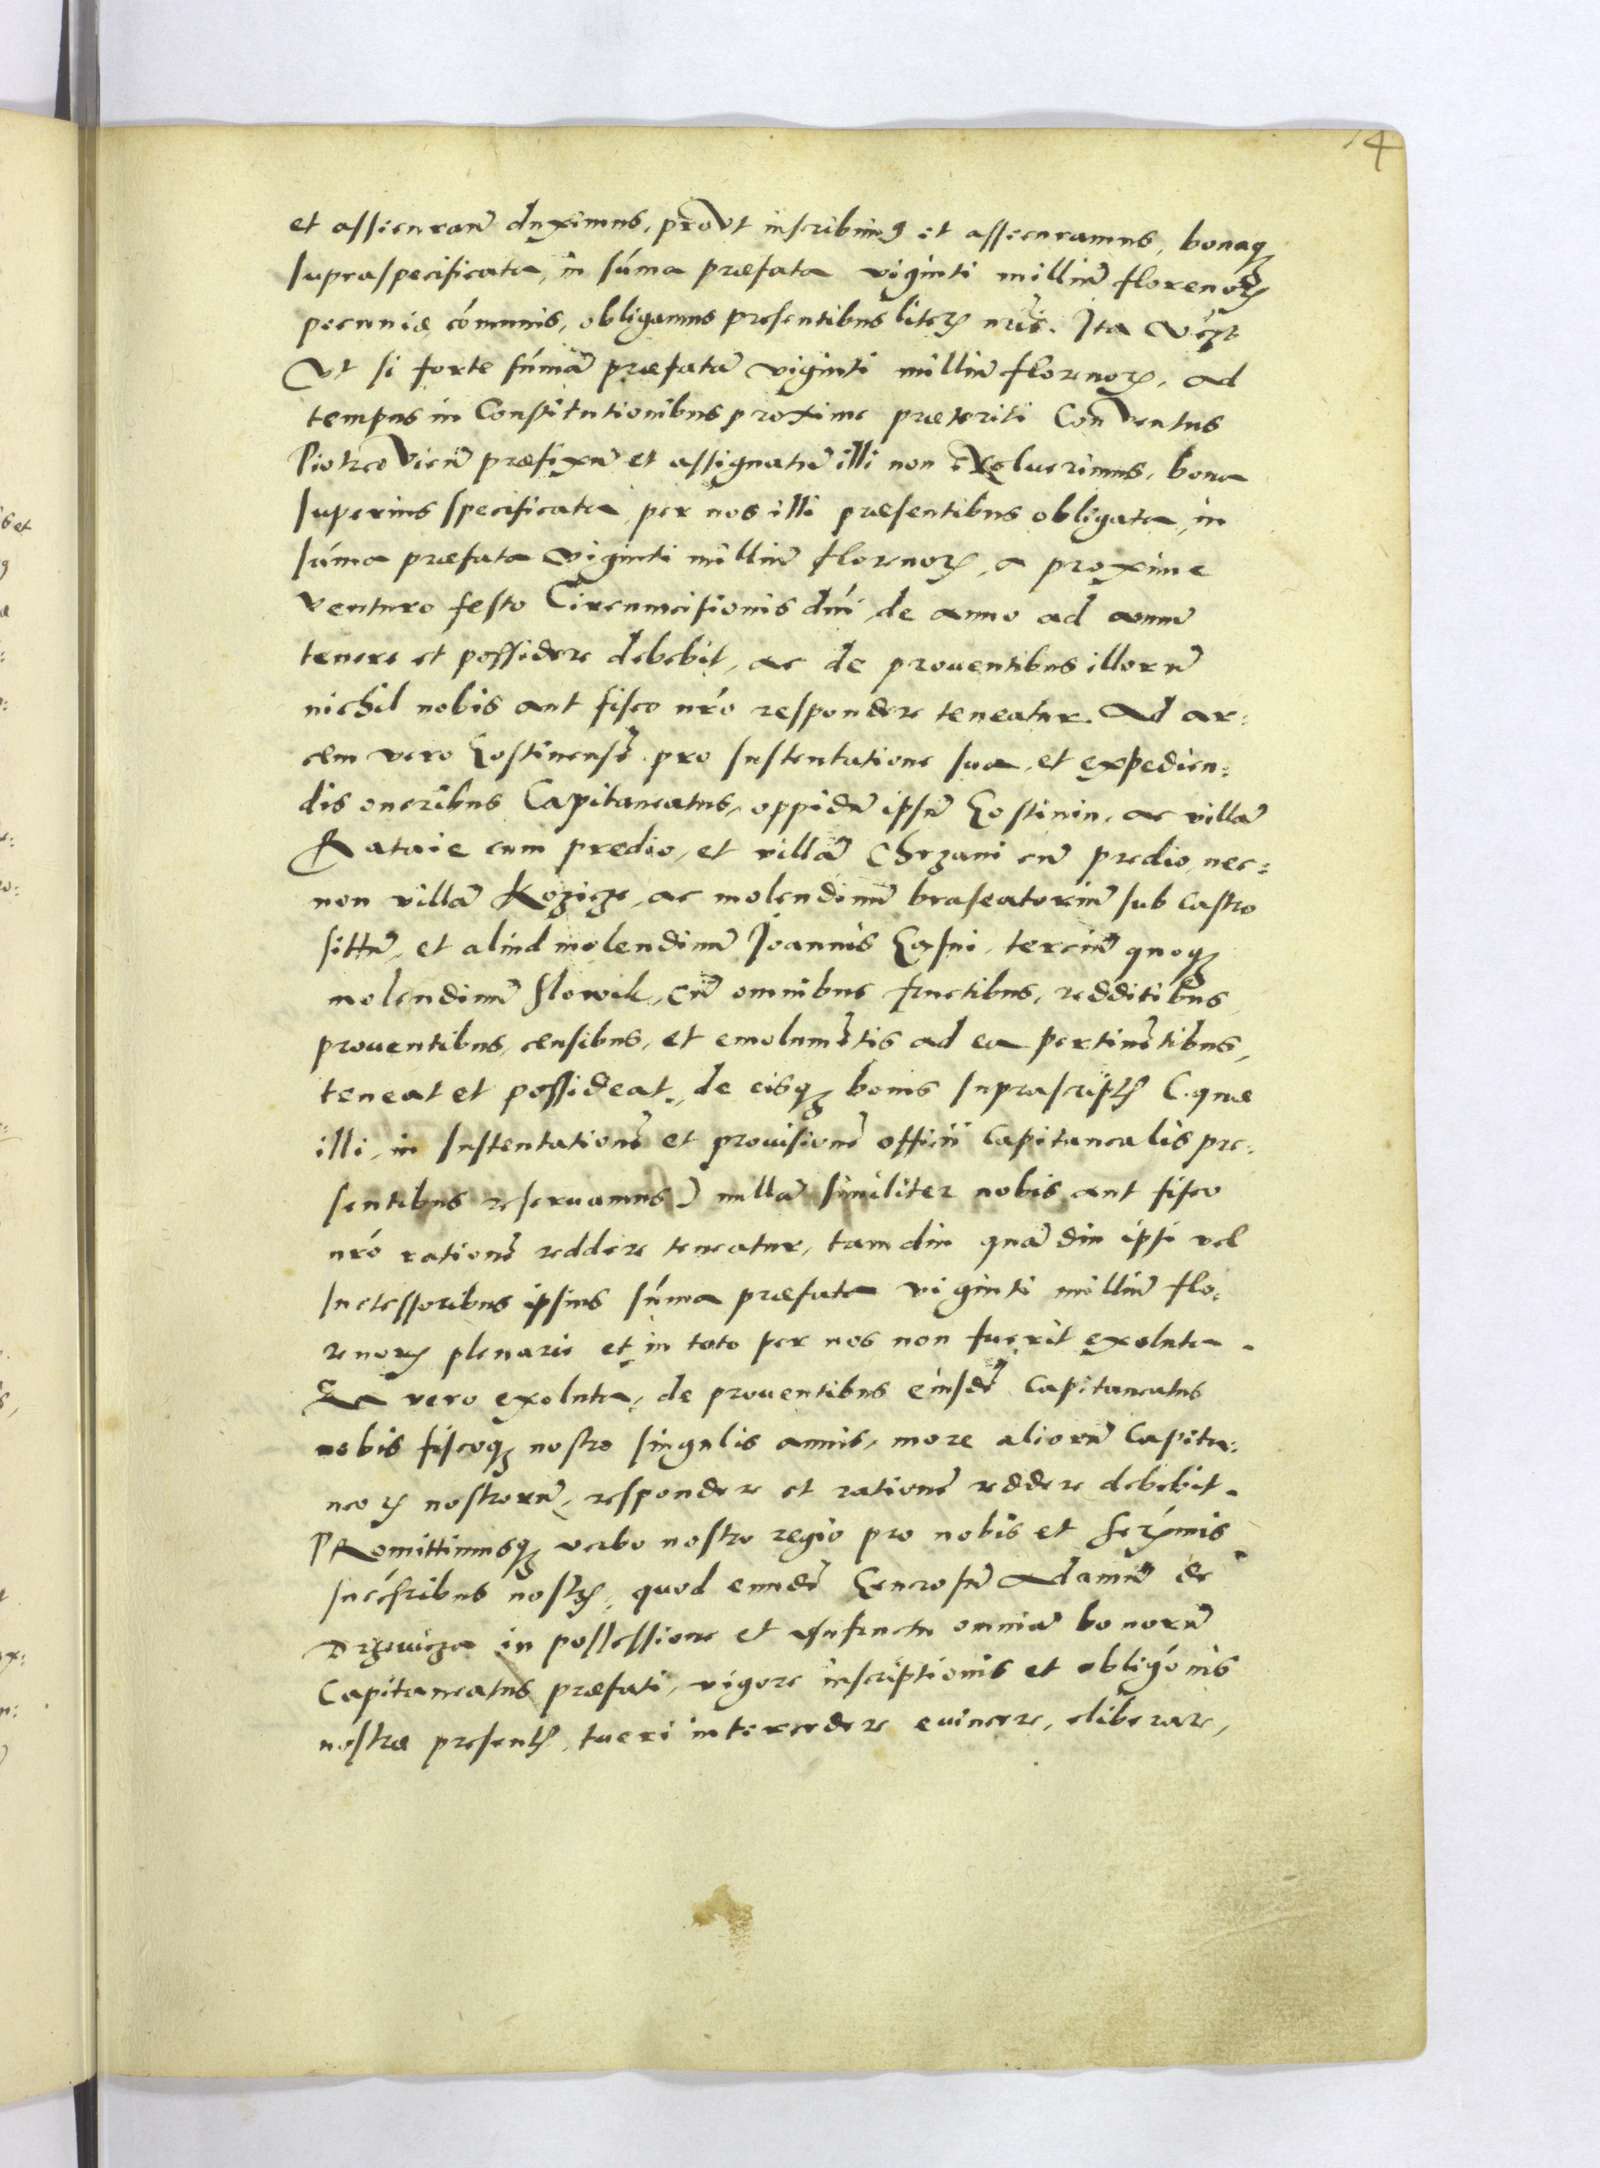 14
et assicurand̃ duximus, proVt inscribim9 et assecuramus, bonaqȝ
supraspecificata, in sum̃a præfata viginti milliũ florenoꝝ
pecuniæ com̃unis, obligamus presentibus literꝭ nr̃is. Ita
Vt si forte sum̃ã præfatã viginti milliũ florenoꝝ, ad
tempus in Constitutionibus proxime præteriti ConVentus
PiotrcoVieñ præfixũ et assignatũ illi non exolucrimus, bona
superius specificata, per nos illi præsentibus obligata, in
sum̃a præfata viginti milliũ florenoꝝ, a proxime
venturo festo Circumcisionis dñi, de anno ad annũ
tenere et possidere debebit, ac de prouentibus illorũ
nichil nobis aut fisco nr̃o respondere teneatur. Ad ar:
cem vero Gostinensẽ pro sustentatione sua, et expedien:
dis oneribus Capitaneatus, oppidũ ipsũ Gostinin, ac villã
Rataie cum predio, et villã Chrzani cũ predio, nec:
non villã Kozicze, ac molendinũ braseatoriũ sub castro
sittũ, et aliud molendinũ Joannis, terciũ quoqȝ
molendinũ Slowik, cũ omnibus fructibus, redditibus
prouentibus, censibus, et emolumẽtis ad ea pertinẽtibus,
teneat et possideat, de eisqȝ bonis suprascriptꝭ (quæ
illi, in sustentationẽ et prouisionẽ officii Capitanealis pre:
sentibus reseruamus) nullã similiter nobis aut fisco
nr̃o rationẽ reddere teneatur, tam diu quã diu ipsi vel
suctessoribus ipsius sum̃a præfata viginti milliũ flo:
renoꝝ plenarie et in toto per nos non fuerit exoluta.
Ea vero exoluta, de prouentibus eiusdẽ Capitaneatus
nobis fiscoqȝ nostro singulis annis, more aliorũ Capita:
neoꝝ nostrorũ, respondere et rationẽ reddere debebit.
PRomittimusqȝ verbo nostro regio pro nobis et ser̃mis
succ̃sribus nostrꝭ, quod eundẽ Generosũ Adamũ de
Drzewicza in possessione et vsufructu omniũ bonorũ
Capitaneatus præfati, vigore inscriptionis et oblig̃onis
nostræ presentꝭ, tueri intercedere euincere, eliberare,